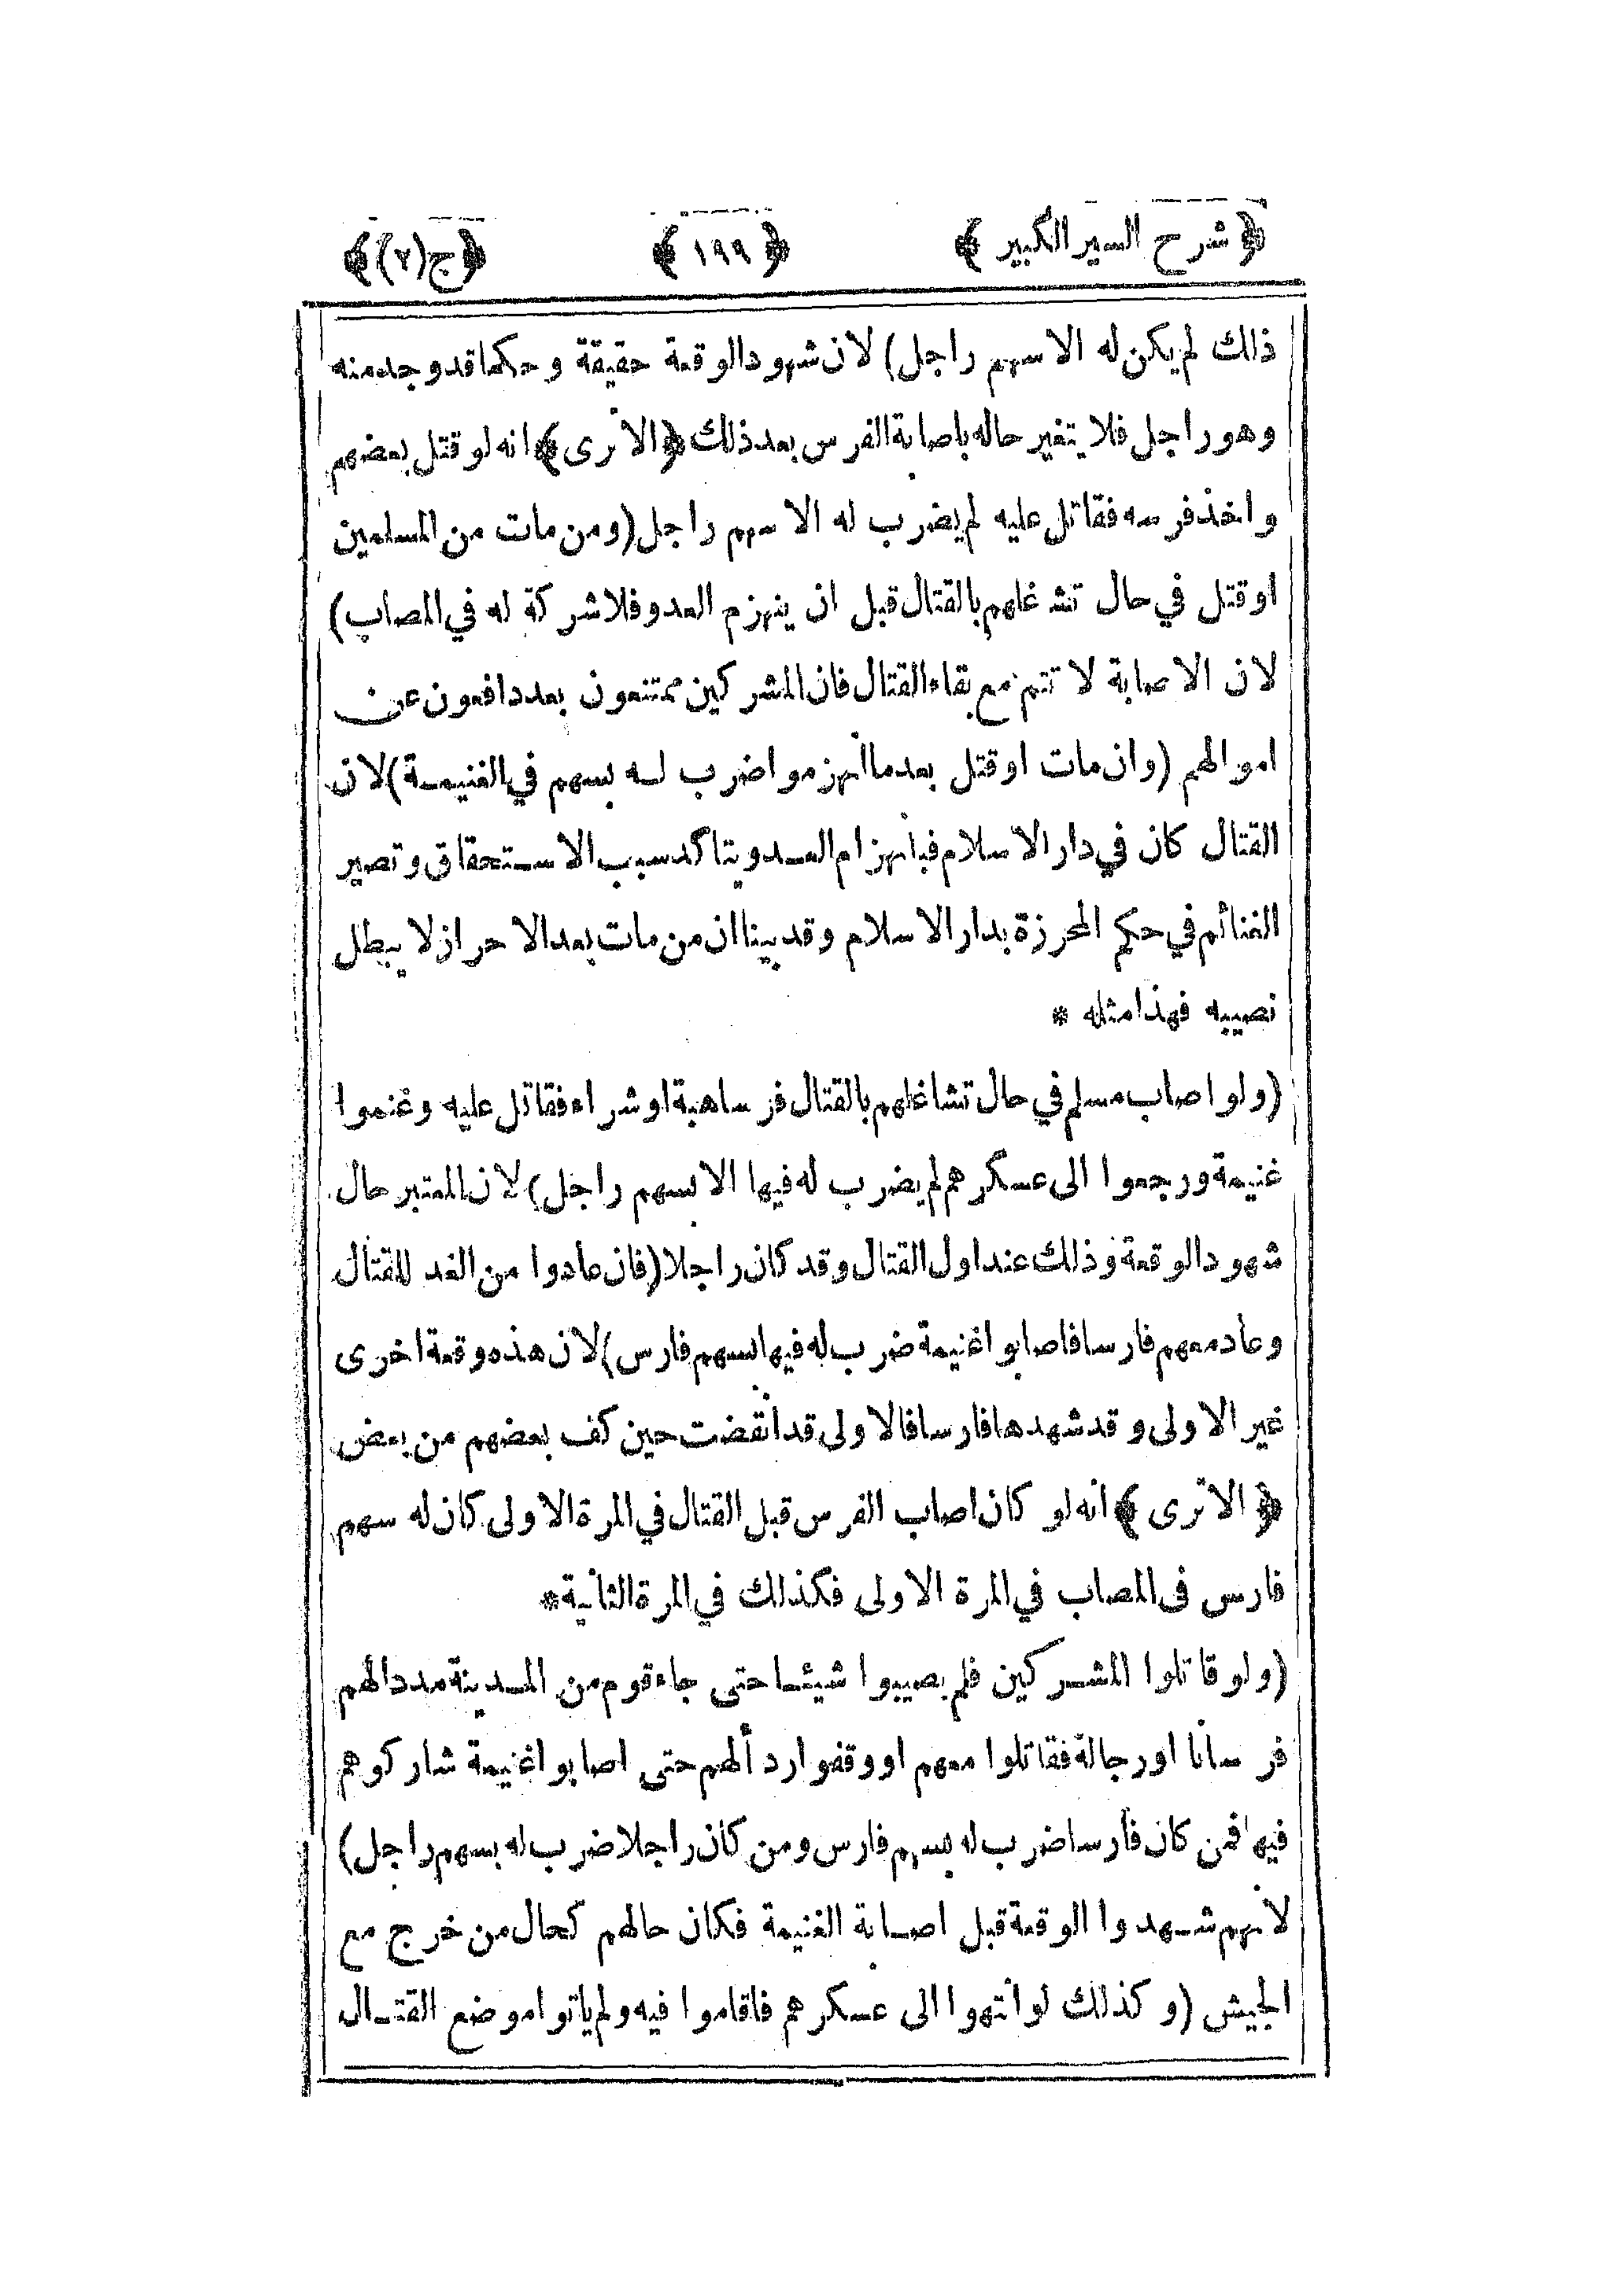 ﴿ شرح السير الكبير ﴾ ﴿ ١٩٩ ﴾ ﴿ج(٢)﴾
ذلك لم يكن له الا سهم راجل) لان شهود الوقعة حقيقة وحكما قد وجد منه
وهو راجل فلا يتغير حاله باصابة الفرس بعد ذلك ﴿الا ترى﴾ انه لو قتل بعضهم
واخذ فرسه فقاتل عليه لم يضرب له الا سهم راجل (ومن مات من المسلمين
او قتل في حال تشاغلهم بالقتال قبل ان ينهزم العدو فلا شركة له في المصاب)
لان الاصابة لا تتم مع بقاء القتال فان المشركين ممتنعون بعد دافعون عن
اموالهم (وان مات او قتل بعد ما انهزموا ضرب له بسهم في الغنيمة) لان
القتال كان في دار الاسلام فبانهزام العدو يتاكد سبب الاستحقاق وتصير
الغنائم في حكم المحرزة بدار الاسلام وقد بينا ان من مات بعد الاحراز لا يبطل
نصيبه فهذا مثله *
(ولو اصاب مسلم في حال تشاغلهم بالقتال فرسا هبة او شراء فقاتل عليه وغنموا
غنيمة ورجعوا الى عسكرهم لم يضرب له فيها الا بسهم راجل) لان المعتبر حال
شهود الوقعة وذلك عند اول القتال وقد كان راجلا (فان عادوا من الغد للقتال
وعاد معهم فارسا فاصابوا غنيمة ضرب له فيها بسهم فارس) لان هذه وقعة اخرى
غير الاولى وقد شهدها فارسا فالاولى قد انقضت حين كف بعضهم من بعض
﴿ الا ترى ﴾ انه لو كان اصاب الفرس قبل القتال في المرة الاولى كان له سهم
فارس فى المصاب في المرة الاولى فكذلك في المرة الثانية*
(ولو قاتلوا المشركين فلم يصيبوا شيئا حتى جاء قوم من المدينة مددا لهم
فرسانا او رجالة فقاتلوا معهم او وقفوا ردأ لهم حتى اصابوا غنيمة شاركوهم
فيها فمن كان فارسا ضرب له بسهم فارس ومن كان راجلا ضرب له بسهم راجل)
لانهم شهدوا الوقعة قبل اصابة الغنيمة فكان حالهم كحال من خرج مع
الجيش (وكذلك لو انتهوا الى عسكرهم فاقاموا فيه ولم ياتوا موضع القتال